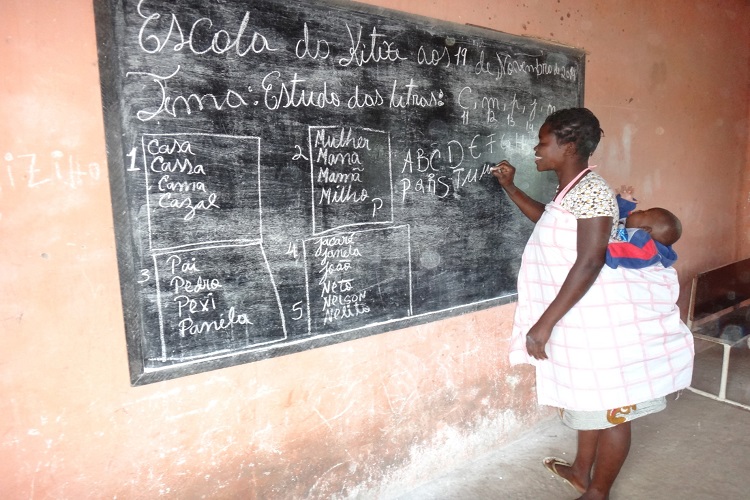 Escola do Kitix aos 19 de Novembro de
Tema: Estudo das letras: C, m, p, j, n
11 12 13 14
1
Casa
Cassa
Cama
Cazal
2
Mulher
Mana
Mamã
Milho
P
A B C D E F
P Q R S T U
3
Pai
Pedro
Pexi
Panela
4
Jacaré
Janela
João
5
Neto
Nelson
Nelito
IZITO